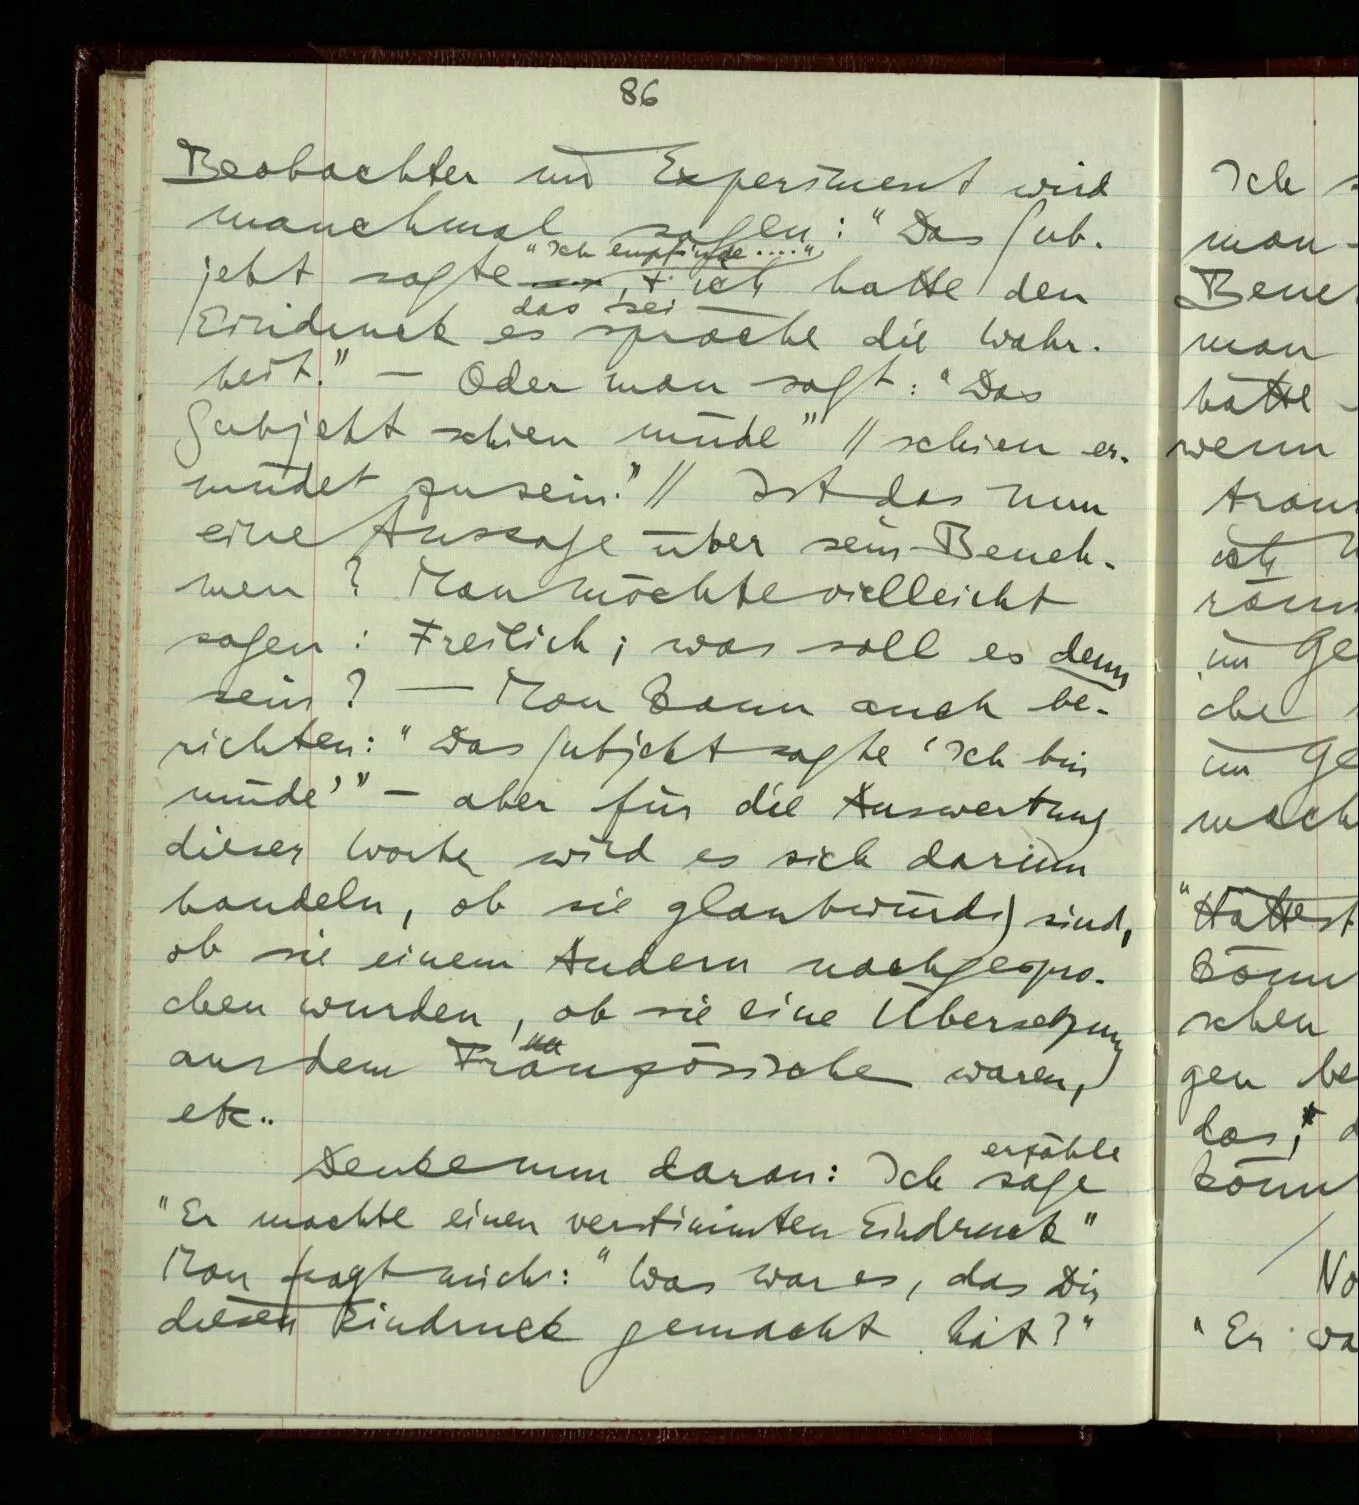 86
Beobachter und Experiment wird
manchmal sagen: "Das Sub-
"Ich empfinde ...."
jekt sagte , & ich hatte den
das sei
Eindruck es spräche die Wahr-
heit." – Oder man sagt: "Das
Subjekt schien müde" // schien er-
müdet zu sein." // Ist das nun
eine Aussage über sein Beneh-
men? Man möchte vielleicht
sagen: Freilich; was soll es denn
sein? — Man kann auch be-
richten: "Das Subjekt sagte 'Ich bin
müde'" – aber für die Auswertung
dieser Worte wird es sich darum
handeln, ob sie glaubwürdig sind,
ob sie einem Andern nachgespro-
chen wurden, ob sie eine Übersetzung
aus dem Französische waren,
etc..
erzähle
Denke nun daran: Ich sage
"Er machte einen verstimmten Eindruck"
Man fragt mich: "Was war es, das Dir
diesen Eindruck gemacht hat?"
Ich
man
man
hätte
wenn
ich
im Ge
che
im Ge
"Hättest
schen
gen be
das,
No
"Er wa